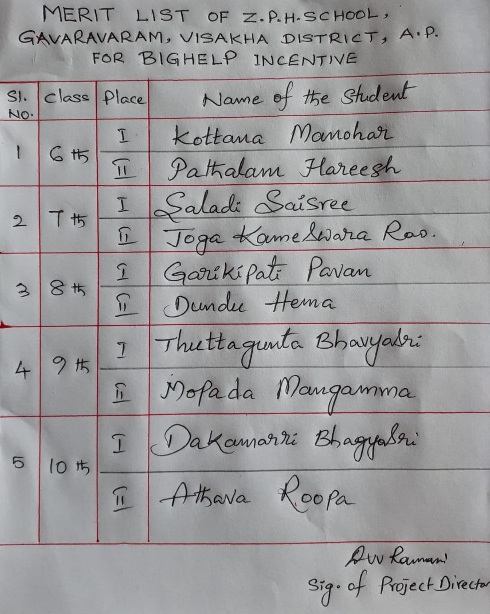 MERIT LIST OF Z.P.H.SCHOOL,
GAVARAVARAM, VISAKHA DISTRICT, A.P.
FOR BIGHELP INCENTIVE
Sl. No. Class Place Name of the Student
1 6th I Kottana Manohar
II Pathalam Hareesh
2 7th I Saladi Saisree
II Joga Kameswara Rao.
3 8th I Garikipati Pavan
II Dundu Hema
4 9th I Thuttagunta Bhavyasri
II Mopada Mangamma
5 10th I Dakamarri Bhagyasri
II Athava Roopa
Ramani
Sig. of Project Director